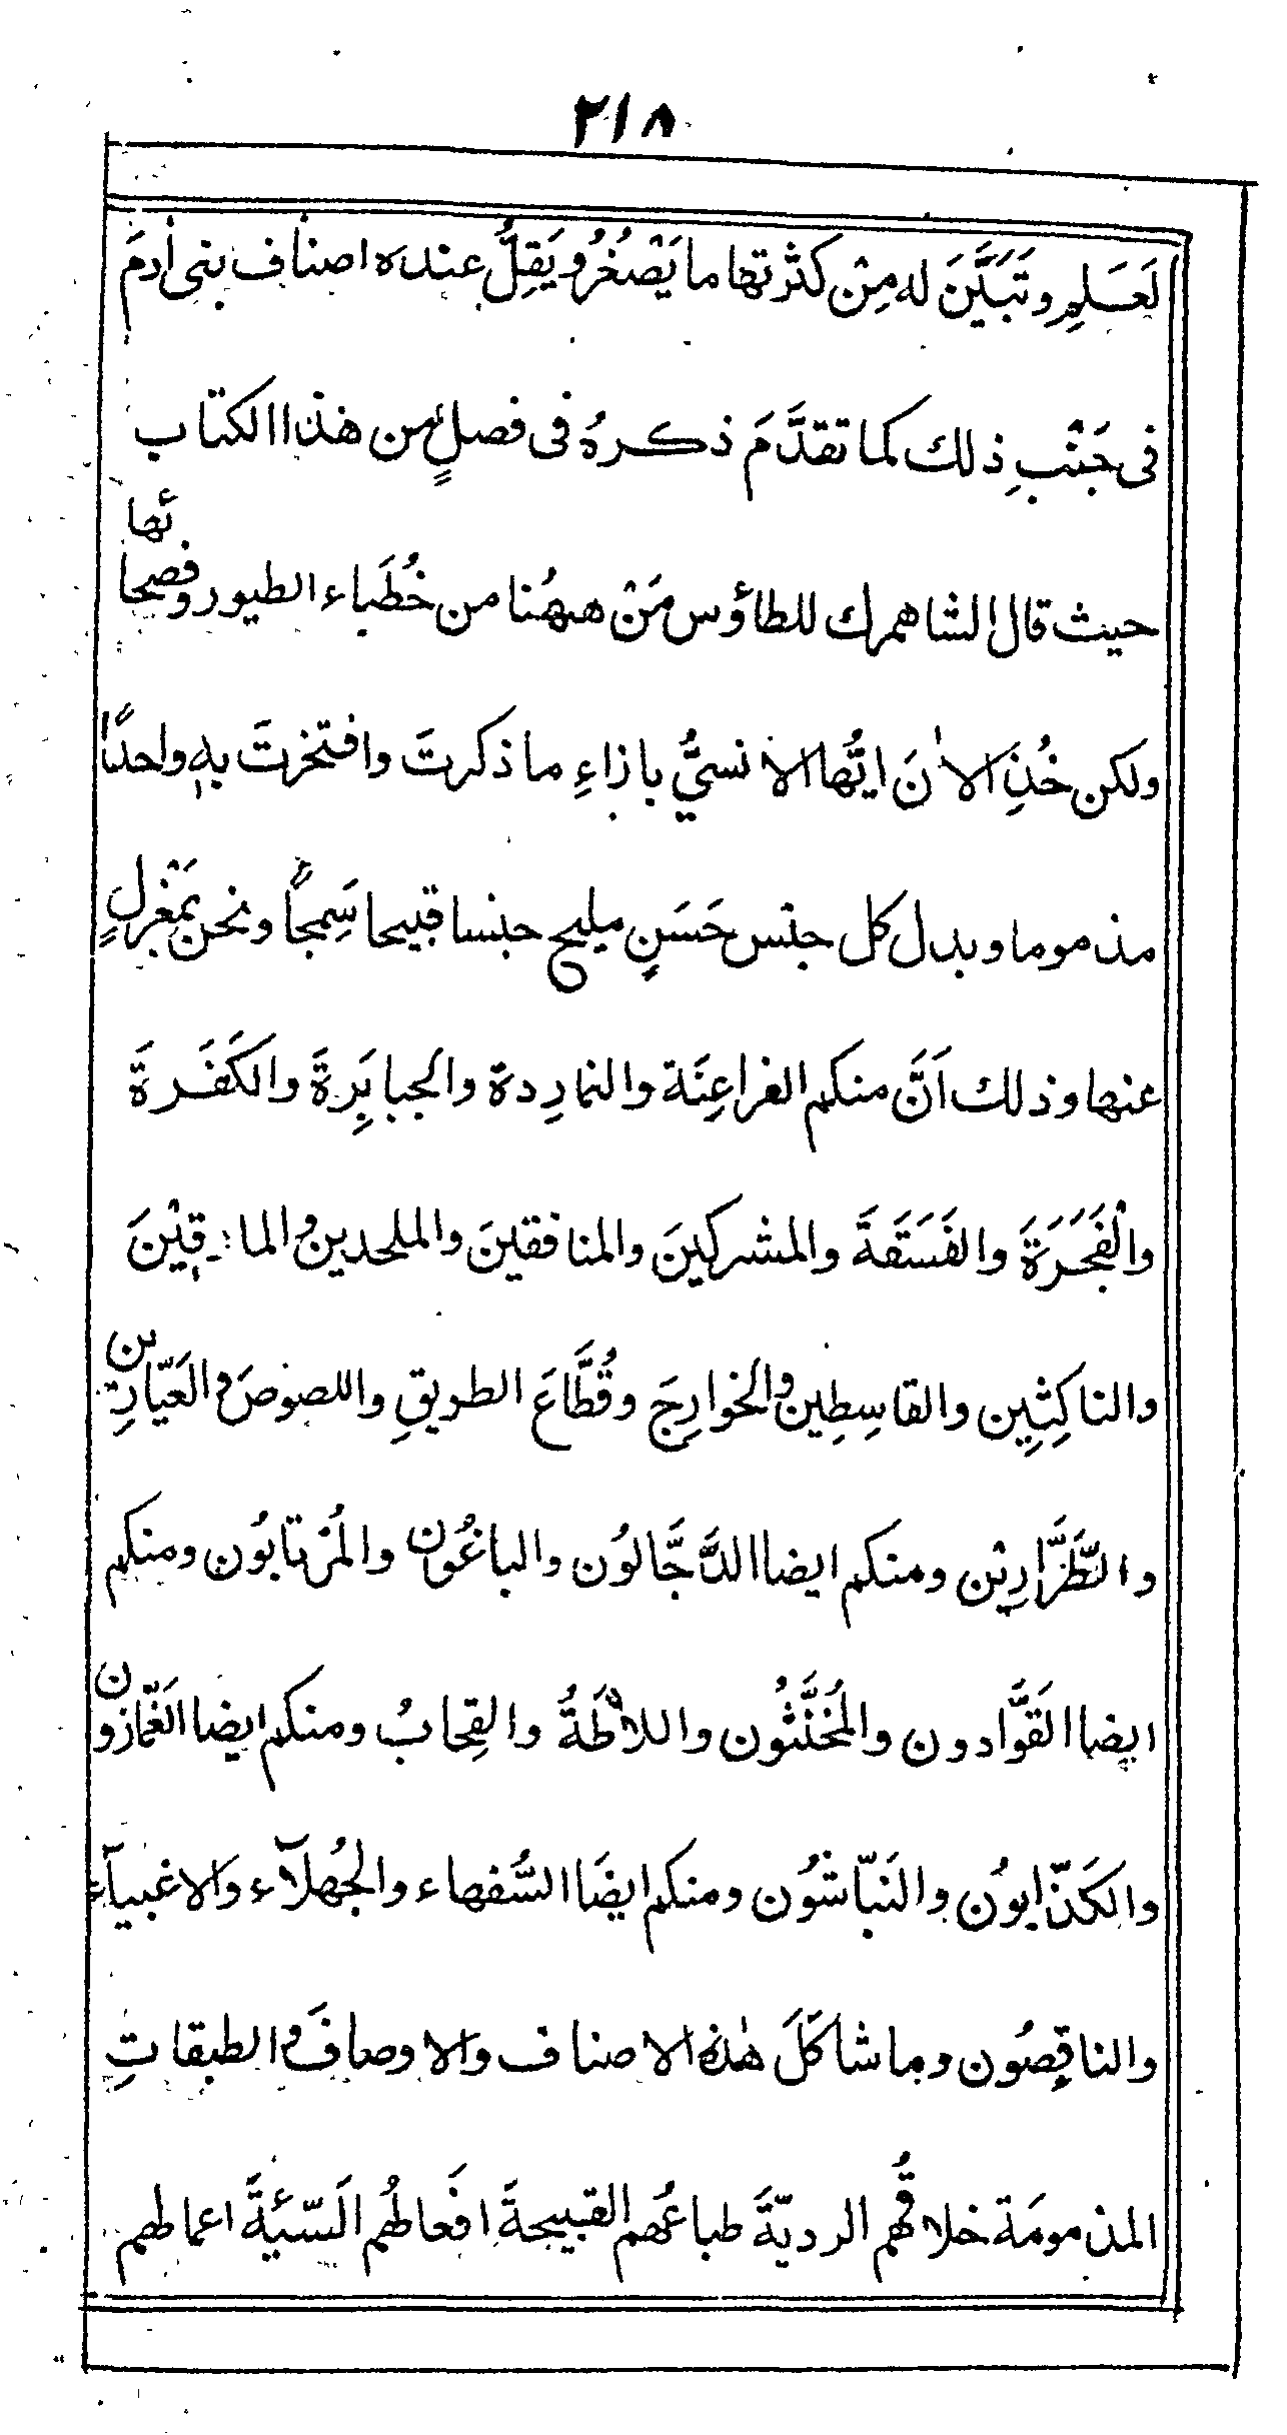 ٢١٨
لَعَلِمِ وتَبَيَّنَ له مِنْ كثْرتها ما يَصْغُرُ ويَقِلُّ عنده اصناف بنى اٰدمَ
فى جَنْبِ ذلك كما تقدَّمَ ذكرهُ فى فصلٍ من هذا الكتاب
حيث قال الشاهمرك للطاؤس مَنْ هـهُنا من خُطَباء الطيور وفصحائها
ولكن خُذِ الاٰنَ ايُّها الانسيُّ بازاءِ ما ذكرتَ وافتخرتَ بهٖ واحدًا
مذموما وبدل كل جنس حَسَنٍ مليح جنسا قبيحا سَمِجًا ونحن بمَعْزلٍ
عنها وذلك اَنَّ منكم الفراعِنَة والنمارِدة والجبابِرةَ والكَفَرةَ
والْفَجَرَةَ والفَسَقَةَ والمشركينَ والمنافقينَ والملحدين والمارقِيْنَ
والناكِثِين والقاسِطِين والخوارِجَ وقُطَّاعَ الطريقِ واللصوصَ والعَيّارِين
والطَّرَّارِيْن ومنكم ايضا الدَّجَّالوُن والباغُون والمُرْتابُون ومنكم
ايضا القَوَّادون والمُخَنَّثُون واللاطَةُ والقِحابُ ومنكم ايضا الغَمّازون
والكَذّابوُن والنَبّاشُون ومنكم ايضَا السُّفهاء والجُهلآء والاغبيآء
والناقِصُون وما شاكَلَ هٰذه الاصناف والاوصافَ والطبقاتِ
المذمومَة خلاقُهم الرديّةَ طباعُهم القبيحةَ افَعالهُم السّيئَةَ اعمالهم